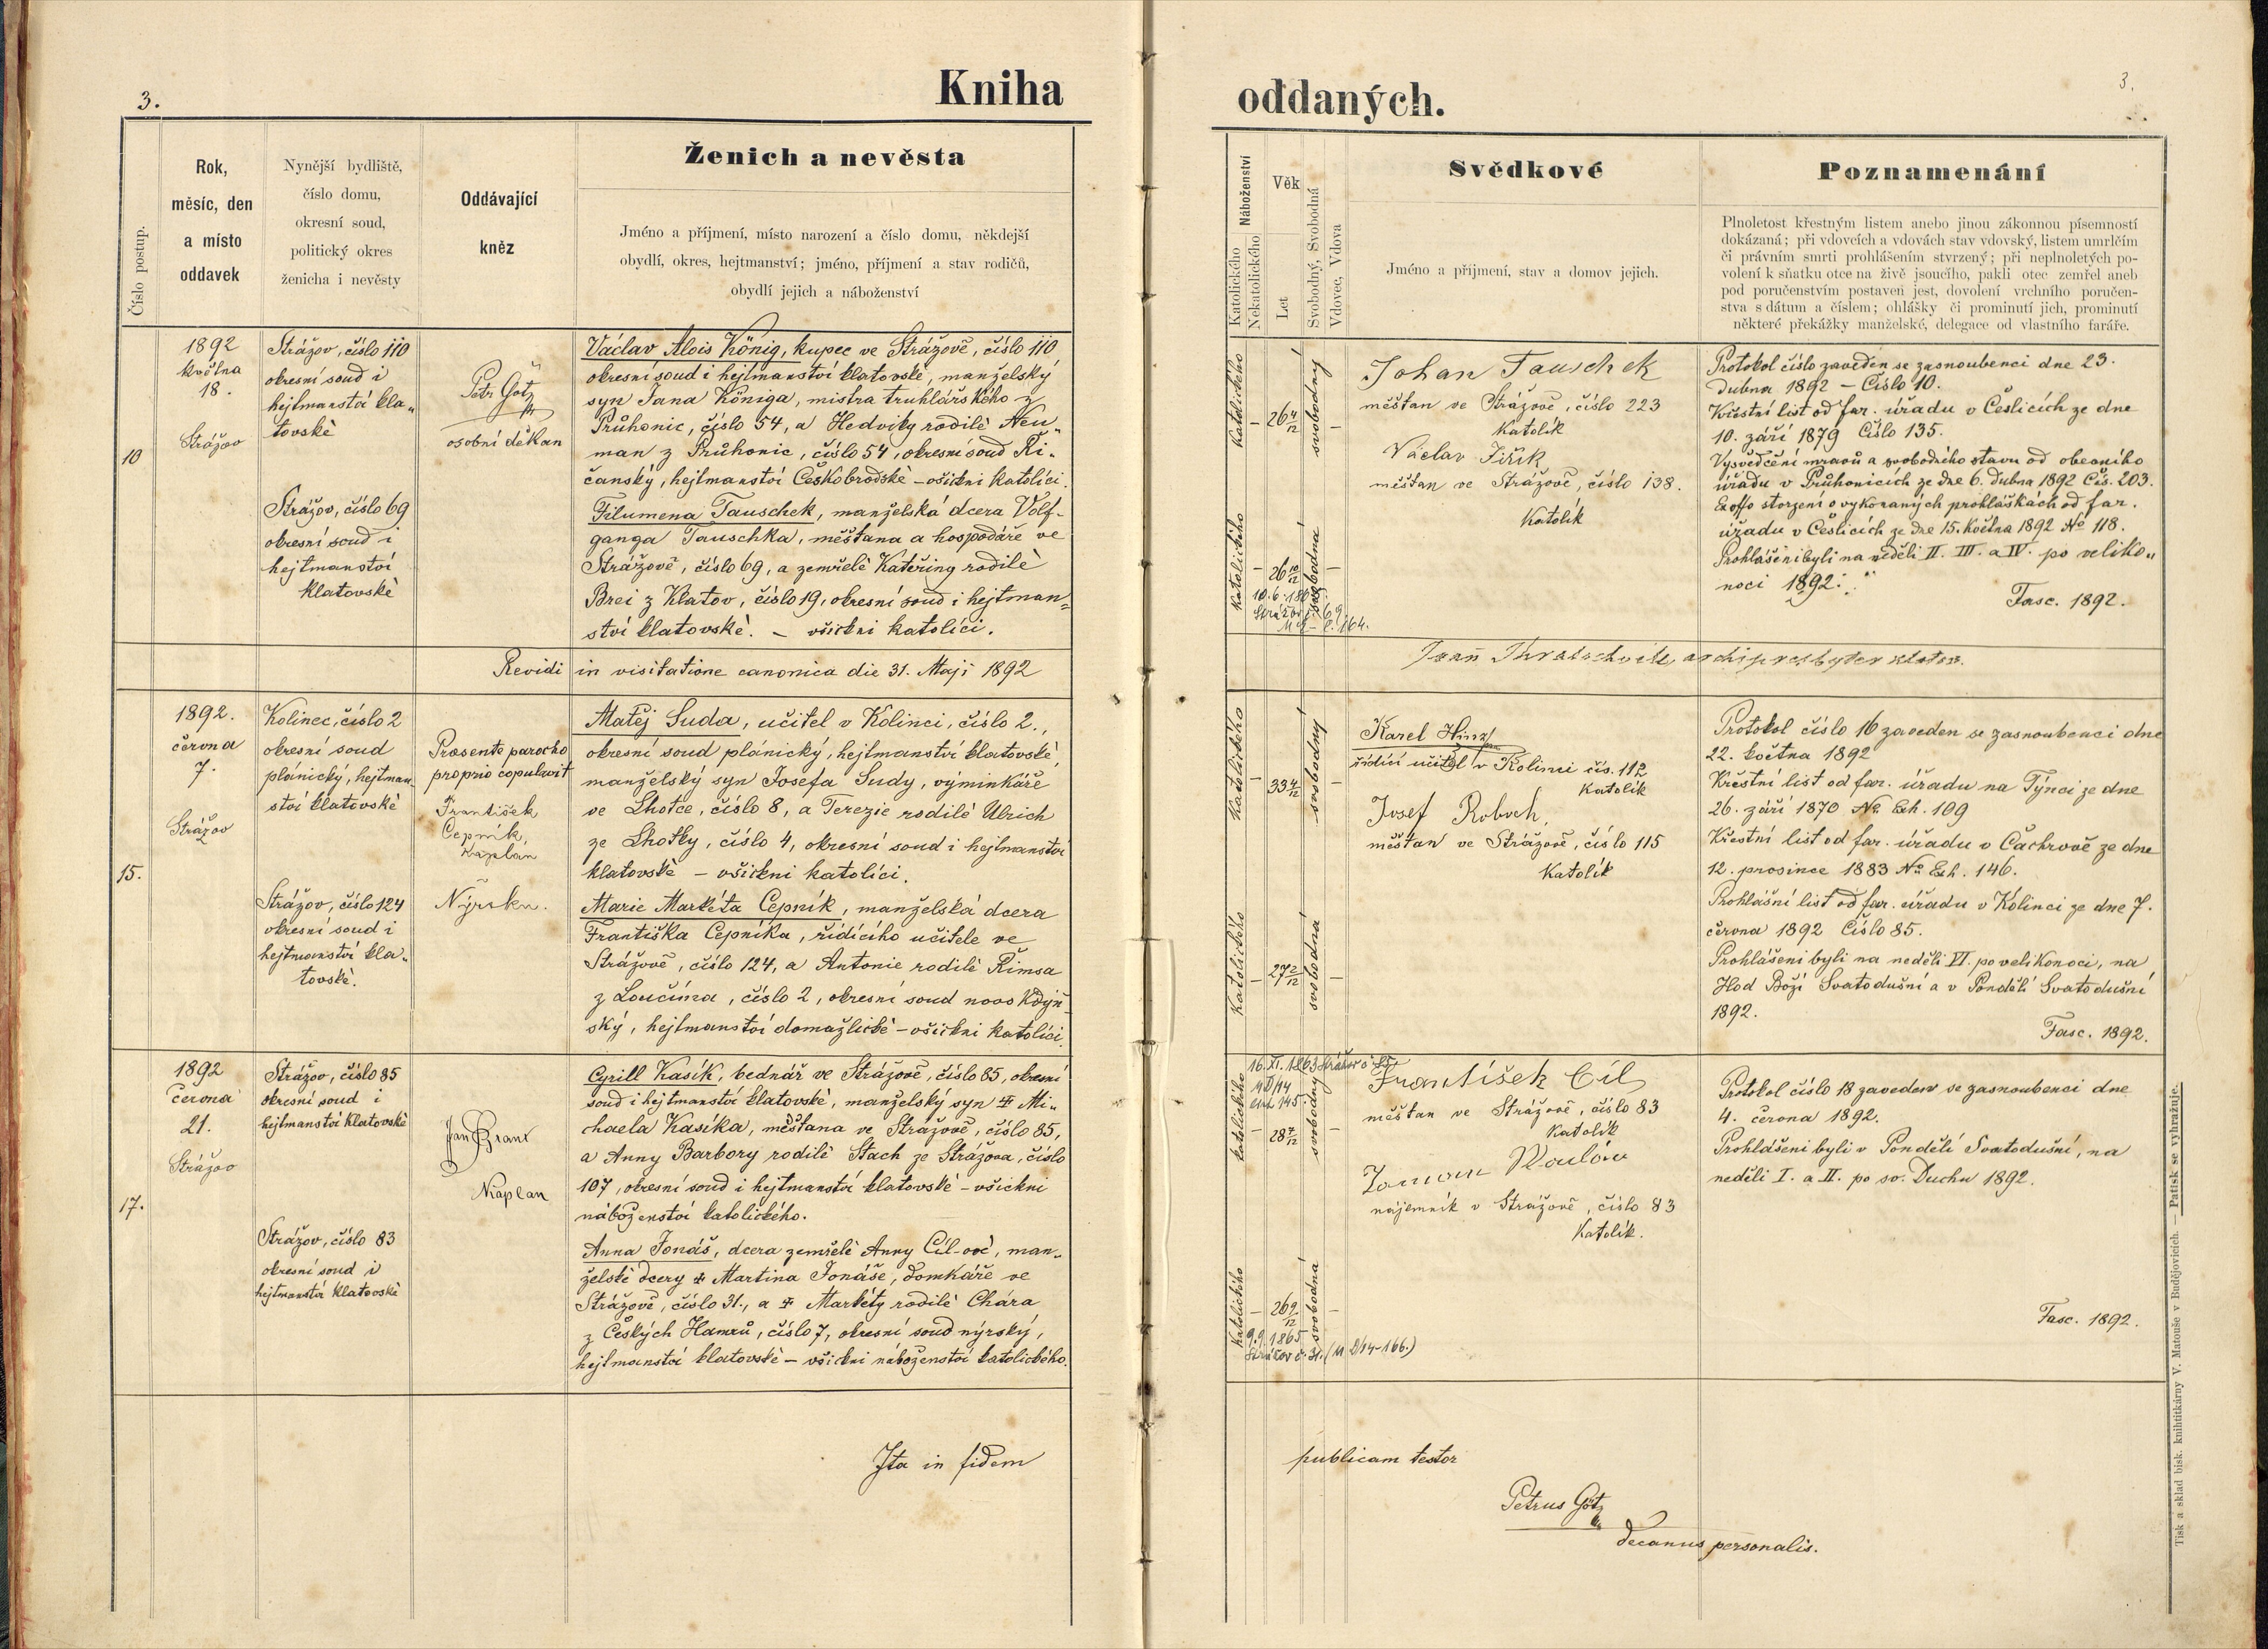 3.
Kniha
Číslo postup.
Rok,
měsíc, den
a místo
oddavek
Nynější bydliště,
číslo domu,
okresní soud,
politický okres
ženicha i nevěsty
Oddávající
kněz
Ženich a nevěsta
Jméno a příjmení, místo narození a číslo domu, někdejší
obydlí, okres, hejtmanství; jméno, příjmení a stav rodičů,
obydlí jejich a náboženství
10
1892
května
18.
Strážov
Strážov, číslo 110
okresní soud i
hejtmanství kla„
tovské
Petr Götz
osobní děkan
Václav Alois König, kupec ve Strážově, číslo 110
okresní soud i hejtmanství klatovské, manželský
syn Jana Königa, mistra truhlářského z
Průhonic, číslo 54, a Hedviky rodilé Neu„
man z Průhonic, číslo 54, okresní soud Ři„
čanský, hejtmanství Českobrodské – všickni katolíci.
Strážov, číslo 69
okresní soud i
hejtmanství
klatovské
Filumena Tauschek, manželská dcera Volf-
ganga Tauschka, měštana a hospodáře ve
Strážově, číslo 69, a zemřelé Kateřiny rodilé
Brei z Klatov, číslo 19, okresní soud i hejtman„
ství klatovské. – všickni katolíci.
Revidi in visitatione canonica die 31. Maji 1892
15.
1892.
června
7.
Strážov
Kolinec, číslo 2
okresní soud
plánický, hejtman„
ství klatovské
Praesente parocho
proprio copulavit
František
Čepník,
Kaplan
Nýrsku.
Matěj Suda, učitel v Kolinci, číslo 2.,
okresní soud plánický, hejtmanství klatovské,
manželský syn Josefa Sudy, výminkáře
ve Lhotce, číslo 8, a Terezie rodilé Ulrich
ze Lhotky, číslo 4, okresní soud i hejtmanství
klatovské – všickni katolíci.
Strážov, číslo 124
okresní soud i
hejtmanství kla„
tovské.
Marie Markéta Čepník, manželská dcera
Františka Čepníka, řídícího učitele ve
Strážově, číslo 124, a Antonie rodilé Řimsa
z Loučima, číslo 2, okresní soud novo Kdýň„
ský, hejtmanství domažlické – všickni katolíci.
17.
1892
června
21.
Strážov
Strážov, číslo 85
okresní soud i
hejtmanství klatovské
Kaplan
Cyrill Kasík, bednář ve Strážově, číslo 85, okresní
soud i hejtmanství klatovské, manželský syn ‡ Mi„
chaela Kasíka, měštana ve Strážově, číslo 85,
a Anny Barbory rodilé Stach ze Strážova, číslo
107, okresní soud i hejtmanství klatovské – všickni
náboženství katolického.
Strážov, číslo 83
okresní soud i
hejtmanství klatovské
Anna Jonáš, dcera zemřelé Anny Cíl-ové, man„
želské dcery ‡ Martina Jonáše, domkáře ve
Strážově, číslo 31., a ‡ Markéty rodilé Chára
z Českých Hamrů, číslo 7, okresní soud nýrský,
hejtmanství klatovské – všickni náboženství katolického.
Ita in fidem
3.
oddaných.
Náboženství
Katolického
Nekatolického
Věk
Let
Svobodný, Svobodná
Vdovec, Vdova
Svědkové
Jméno a příjmení, stav a domov jejich.
Poznamenání
Plnoletost křestným listem anebo jinou zákonnou písemností
dokázaná; při vdovcích a vdovách stav vdovský, listem umrlčím
či právním smrti prohlášením stvrzený; při neplnoletých po-
volení k sňatku otce na živě jsoucího, pakli otec zemřel aneb
pod poručenstvím postaven jest, dovolení vrchního poručen-
stva s dátum a číslem; ohlášky či prominutí jich, prominutí
některé překážky manželské, delegace od vlastního faráře.
katolického
–
26 4/12
svobodný
–
Johan Tauschek
měštan ve Strážově, číslo 223
Katolík
Václav Jiřík
měštan ve Strážově, číslo 138.
Katolík
katolického
–
26 10/12
svobodná
–
Protokol číslo zaveden se zasnoubenci dne 23.
dubna 1892 – Číslo 10.
Křestní list od far. úřadu v Češlicích ze dne
10. září 1879 Číslo 135.
Vysvědčení mravů a svobodného stavu od obecního
úřadu v Průhonicích ze dne 6. dubna 1892 Čís. 203.
Ex offo stvrzení o vykonaných prohláškách od far.
úřadu v Češlicích ze dne 15. května 1892 No 118.
Prohlášeni byli na neděli II. III. a IV. po veliko„
noci 1892.
Fasc. 1892.
katolického
–
33 4/12
svobodný
–
Karel Hinz
řídící učitel v Kolinci čís. 112
Katolík
Josef Roboch,
měštan ve Strážově, číslo 115
Katolík
katolického
–
27 2/12
svobodná
–
Protokol číslo 16 zaveden se zasnoubenci dne
22. května 1892
Křestní list od far. úřadu na Týnci ze dne
26. září 1870 No. Exh. 109
Křestní list od far. úřadu v Čachrově ze dne
12. prosince 1883 No Exh. 146.
Prohlášní list od far. úřadu v Kolinci ze dne 7.
června 1892 Číslo 85.
Prohlášeni byli na neděli VI. po velikonoci, na
Hod Boží Svatodušní a v Pondělí Svatodušní
1892.
Fasc. 1892.
16. XI. 1863 Strážov č. 85
katolického
–
28 7/12
svobodný
–
František Cíl
měštan ve Strážově, číslo 83
Katolík
nájemník v Strážově, číslo 83
Katolík.
katolického
–
26 9/12
svobodná
–
9.9.1865
Strážov č. 31. (M D/14-166.)
Protokol číslo 18 zaveden se zasnoubenci dne
4. června 1892.
Prohlášeni byli v Pondělí Svatodušní, na
neděli I. a II. po sv. Duchu 1892.
Fasc. 1892.
publicam testor
Petrus Götz
decanus personalis.
Tisk a sklad bisk. knihtiskárny V. Matouše v Budějovicích. — Patisk se vyhražuje.